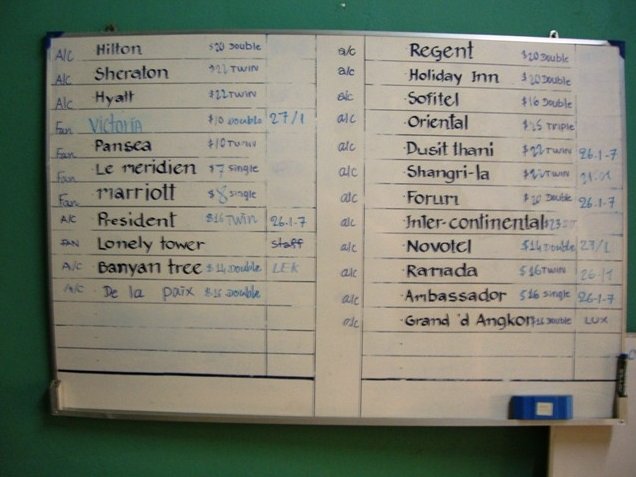 A/C Hilton $20 Double
A/C Sheraton $22 TWIN
A/C Hyatt $22 TWIN
Fan Victoria $10 Double 27/1
Fan Pansea $10 Twin
Fan Le meridien $7 single
Fan marriott $8 single
A/C President $16 TWIN 26.1.7
FAN Lonely tower staff
A/C Banyan tree $14 Double LEK
A/C De la paix $16 Double
a/c Regent $20 Double
a/c Holiday Inn $20 Double
a/c Sofitel $16 Double
a/c Oriental $25 Triple
a/c Dusit thani $22 TWIN 26.1.7
a/c Shangri-la TWIN
a/c Forum $20 Double 26.1.7
a/c Inter-continental $23
a/c Novotel $14 Double 27/1
a/c Ramada $16 TWIN 26.1
a/c Ambassador $16 single 26.1.7
a/c Grand 'd Angkor $16 Double LUX